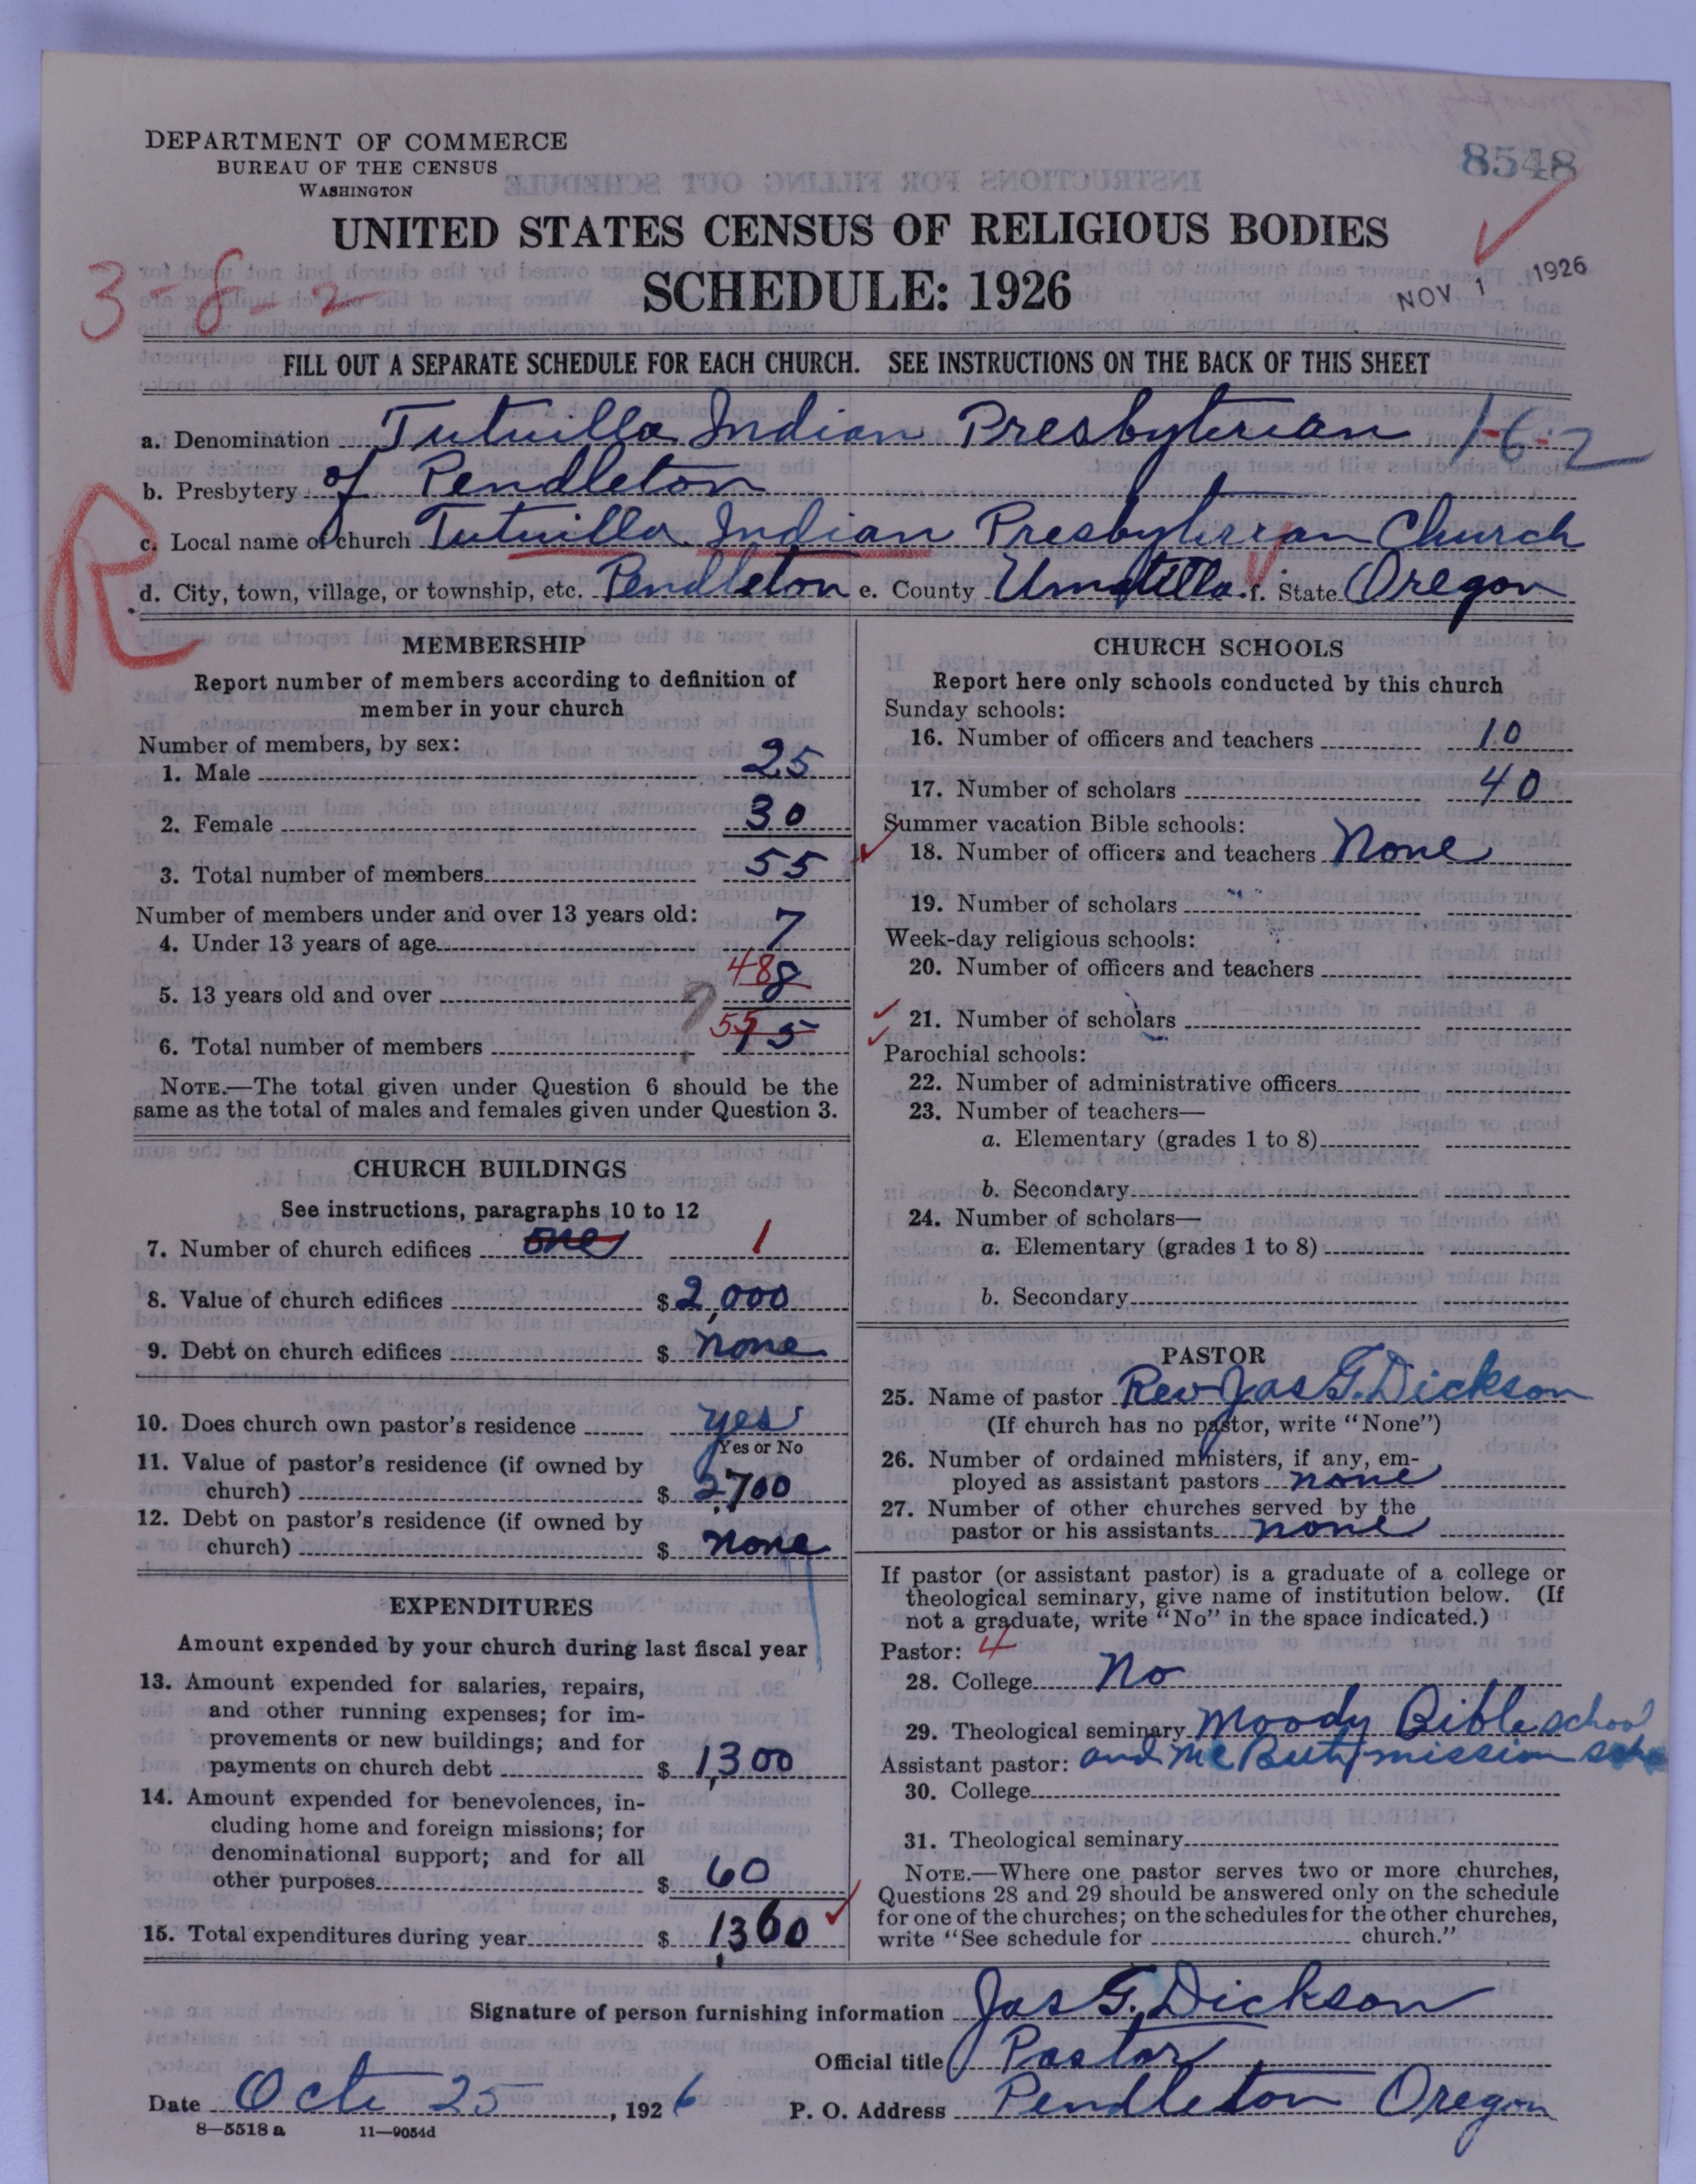 DEPARTMENT OF COMMERCE
BUREAU OF THE CENSUS
WASHINGTON
8548
UNITED STATES CENSUS OF RELIGIOUS BODIES
SCHEDULE: 1926
3-8-2
NOV 1 1926
FILL OUT A SEPARATE SCHEDULE FOR EACH CHURCH. SEE INSTRUCTIONS ON THE BACK OF THIS SHEET
a. Denomination Tutuilla Indian Presbyterian 1-6-2
b. Presbytery of Pendleton
R
c. Local name of church Tutuilla Indian Presbyterian Church
d. City, town, village, or township, etc. Pendleton e. County Umatilla f. State Oregon
MEMBERSHIP
Report number of members according to definition of
member in your church
Number of members, by sex:
1. Male 25
2. Female 30
3. Total number of members 55
Number of members under and over 13 years old:
4. Under 13 years of age 7
5. 13 years old and over 48 8
6. Total number of members ? 55 15
NOTE.—The total given under Question 6 should be the
same as the total of males and females given under Question 3.
CHURCH BUILDINGS
See instructions, paragraphs 10 to 12
7. Number of church edifices one 1
8. Value of church edifices $ 2,000
9. Debt on church edifices $ none
10. Does church own pastor's residence yes
Yes or No
11. Value of pastor's residence (if owned by
church) $ 2,700
12. Debt on pastor's residence (if owned by
church) $ none
EXPENDITURES
Amount expended by your church during last fiscal year
13. Amount expended for salaries, repairs,
and other running expenses; for im-
provements or new buildings; and for
payments on church debt $ 1,300
14. Amount expended for benevolences, in-
cluding home and foreign missions; for
denominational support; and for all
other purposes $ 60
15. Total expenditures during year $ 1,360
CHURCH SCHOOLS
Report here only schools conducted by this church
Sunday schools:
16. Number of officers and teachers 10
17. Number of scholars 40
Summer vacation Bible schools:
18. Number of officers and teachers None
19. Number of scholars
Week-day religious schools:
20. Number of officers and teachers
21. Number of scholars
Parochial schools:
22. Number of administrative officers
23. Number of teachers—
a. Elementary (grades 1 to 8)
b. Secondary
24. Number of scholars—
a. Elementary (grades 1 to 8)
b. Secondary
PASTOR
25. Name of pastor Rev Jas G. Dickson
(If church has no pastor, write "None")
26. Number of ordained ministers, if any, em-
ployed as assistant pastors none
27. Number of other churches served by the
pastor or his assistants none
If pastor (or assistant pastor) is a graduate of a college or
theological seminary, give name of institution below. (If
not a graduate, write "No" in the space indicated.)
Pastor: 4
28. College No
29. Theological seminary Moody Bible school
Assistant pastor: and Mc Beth mission
30. College
31. Theological seminary
NOTE.—Where one pastor serves two or more churches,
Questions 28 and 29 should be answered only on the schedule
for one of the churches; on the schedules for the other churches,
write "See schedule for church."
Signature of person furnishing information Jas G. Dickson
Official title Pastor
Date Oct 25, 1926 P. O. Address Pendleton Oregon
8—5518 a 11—9054d